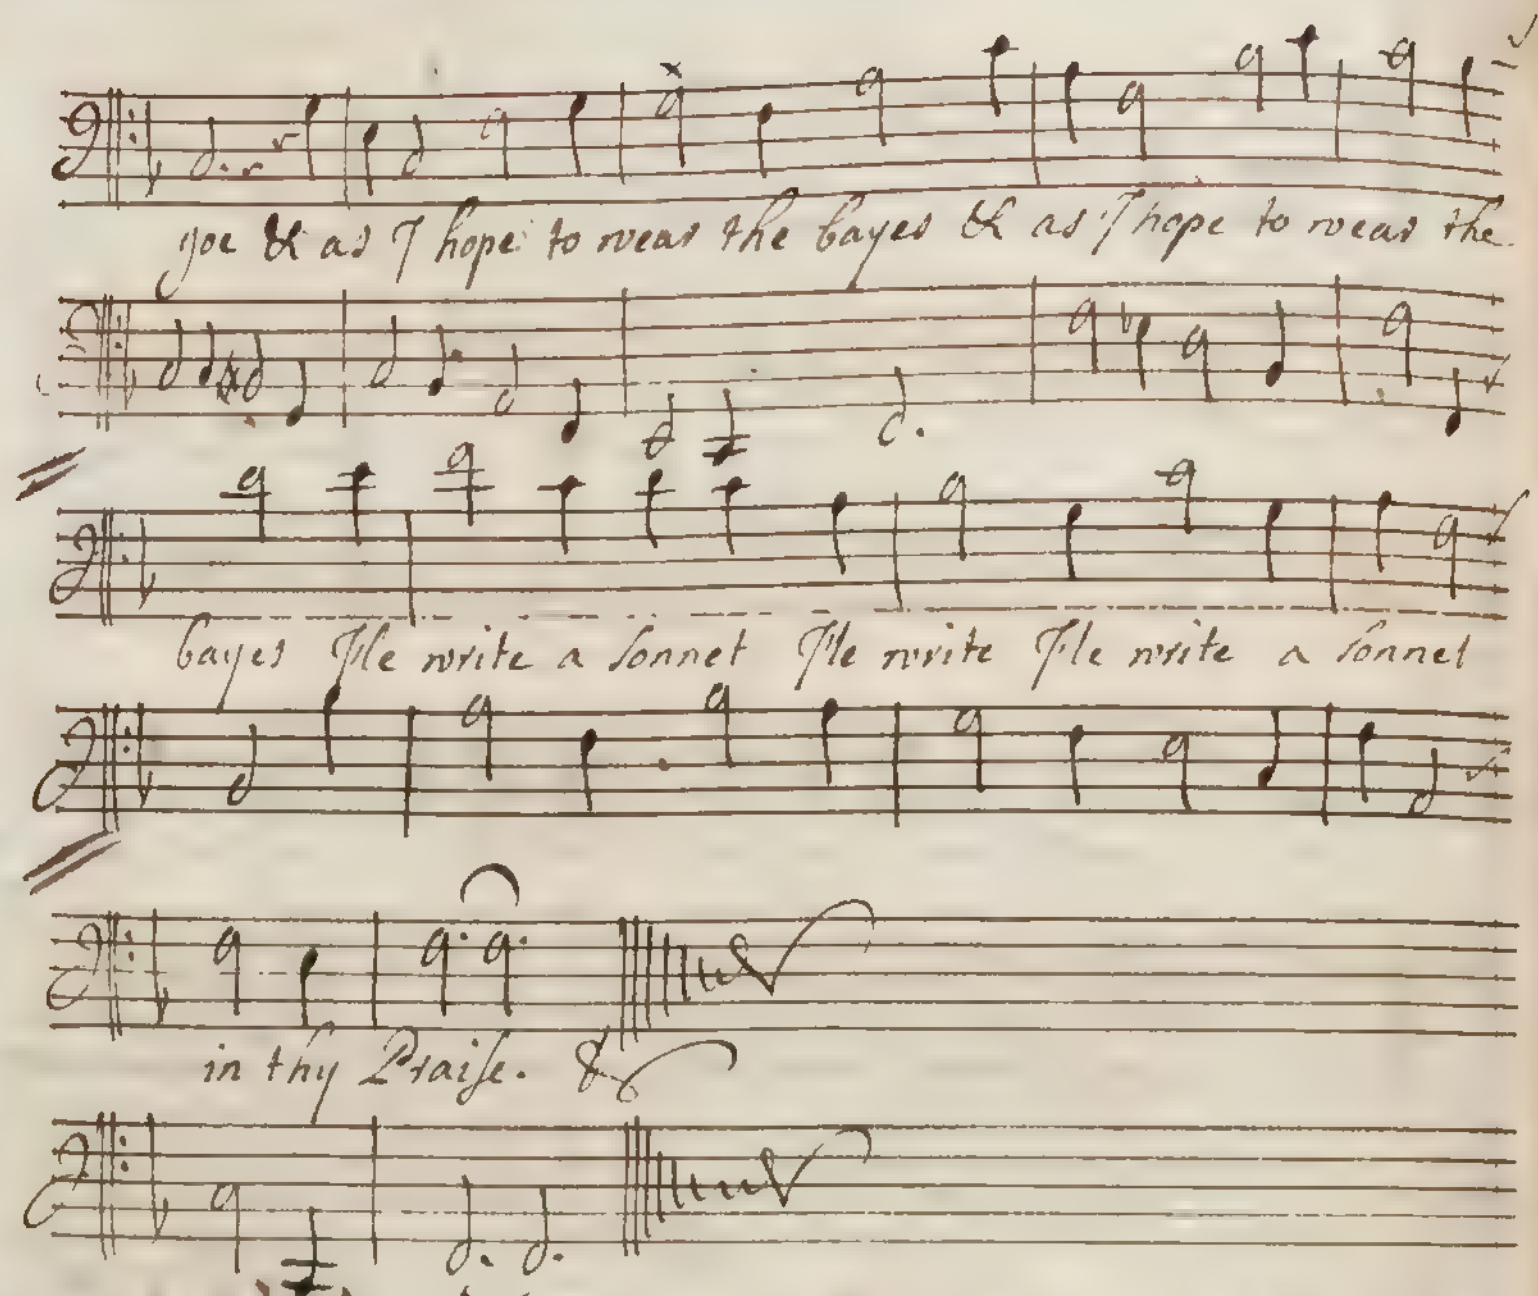 goe & as I hope to wear the bayes & as I hope to wear the
bayes Ile write a sonnet Ile write Ile write a sonnet
in thy Praise. &